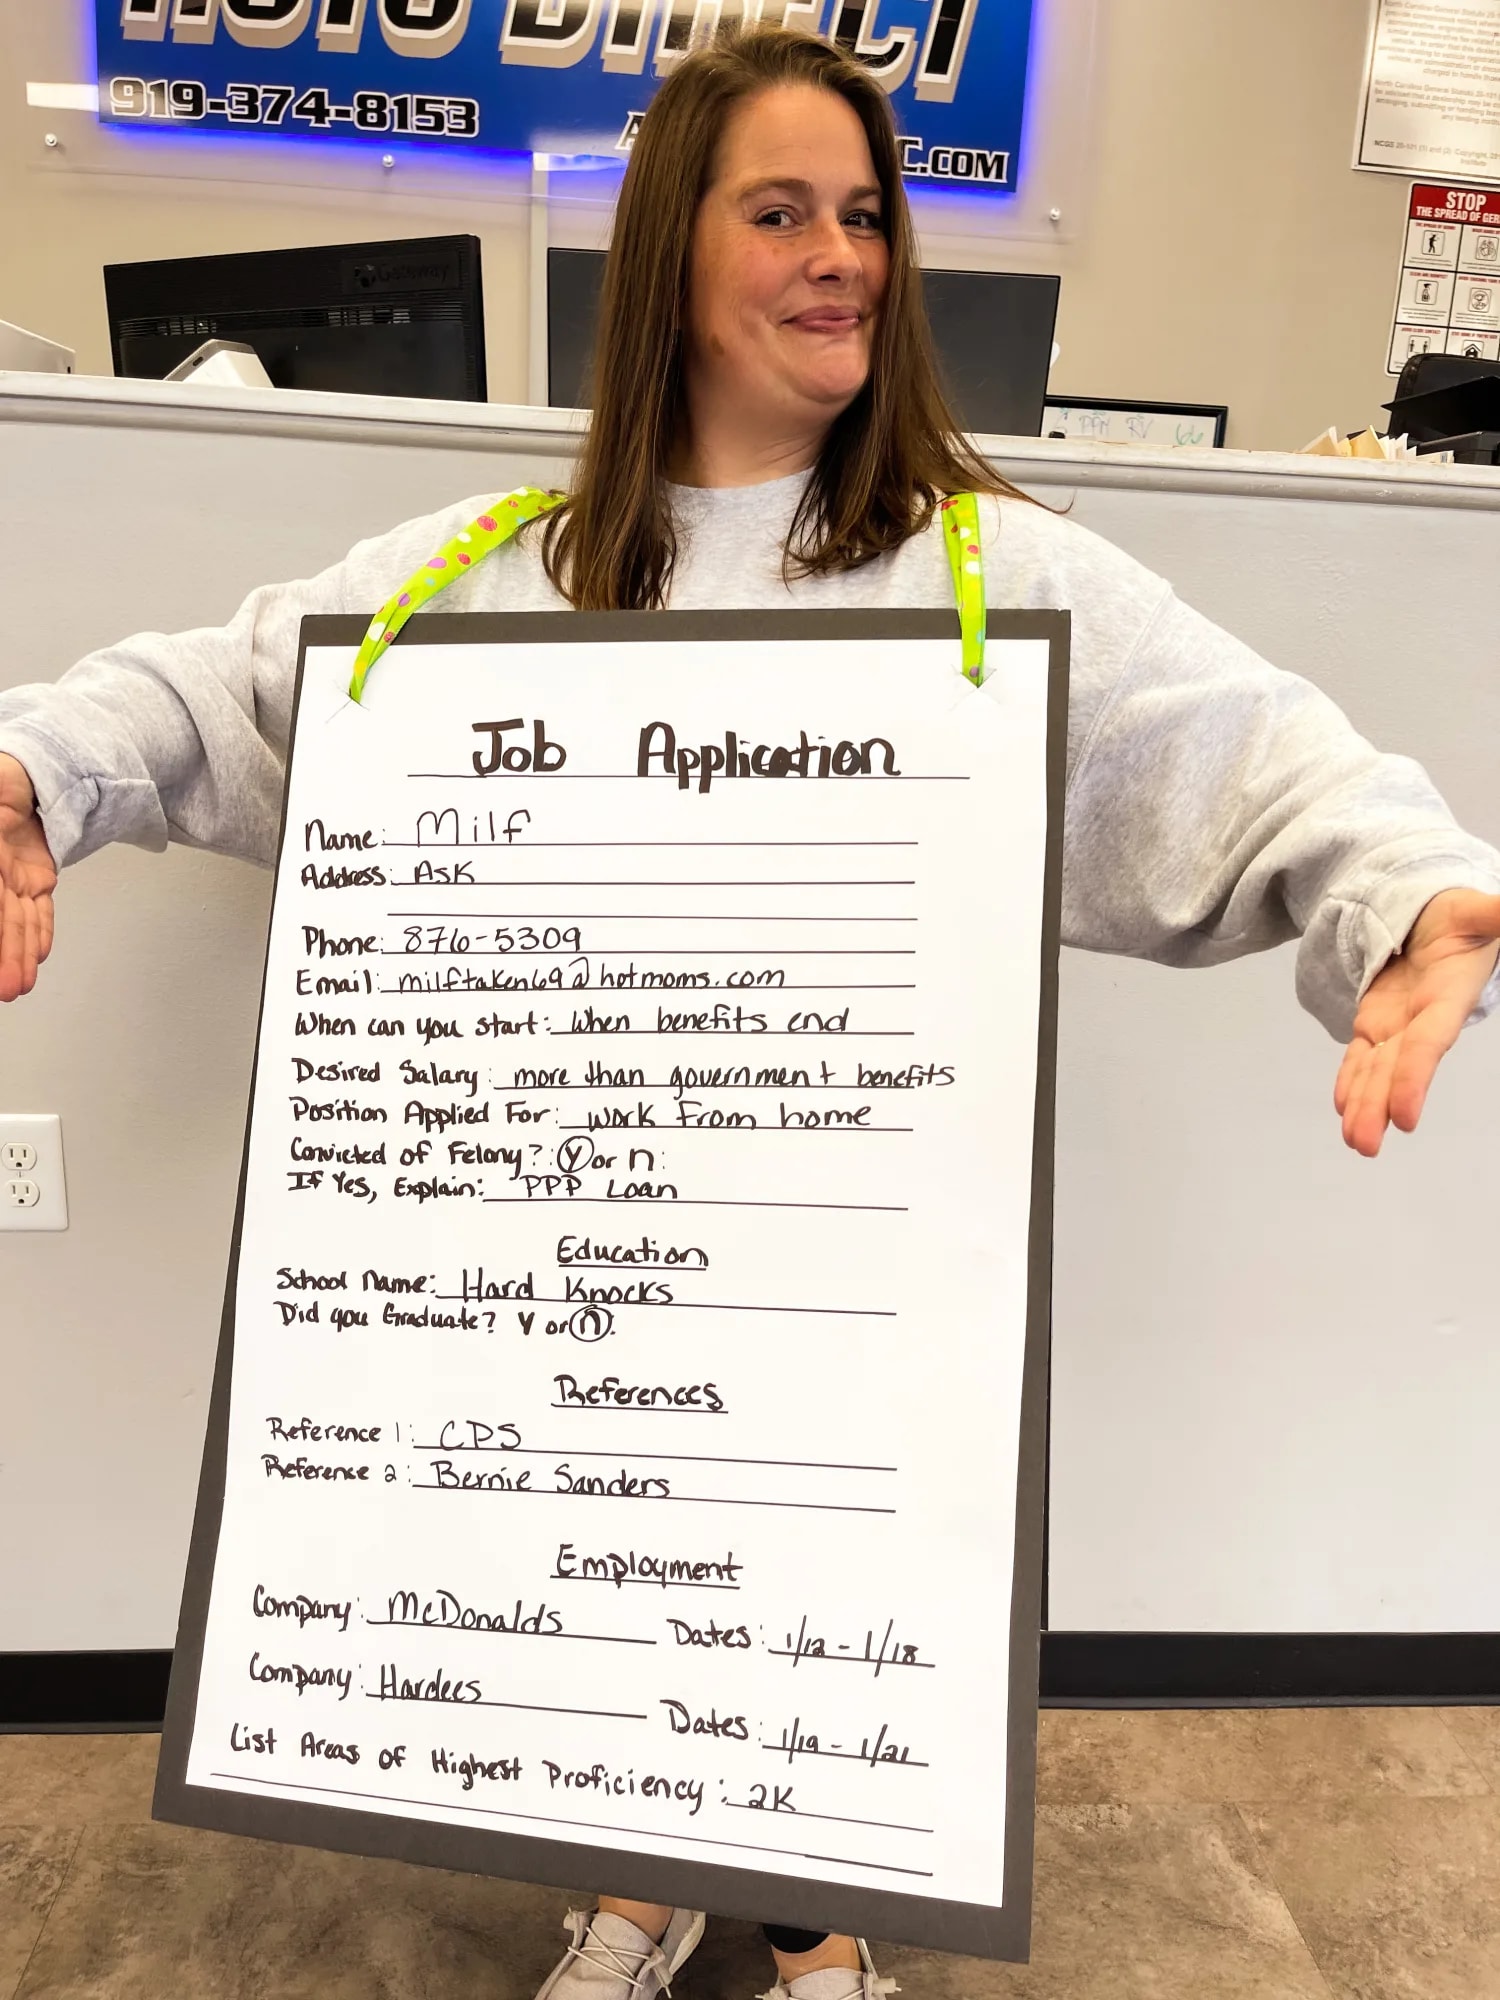 AUTO DIRECT
919-374-8153
C.COM
North Carolina General Statute 20-1
NCGS 20-101 (1) and (2) Copyright, 20
Institute
STOP
THE SPREAD OF GER
Gateway
PPM RV 66
Job Application
Name: Milf
Address: Ask
Phone: 876-5309
Email: milftaken69@hotmoms.com
When can you start: When benefits end
Desired Salary: more than government benefits
Position Applied For: work from home
Convicted of Felony?: y or n:
If Yes, Explain: PPP Loan
Education
School Name: Hard Knocks
Did you Graduate? Y or n:
References
Reference 1: CPS
Reference 2: Bernie Sanders
Employment
Company: McDonalds Dates: 1/12 - 1/18
Company: Hardees Dates: 1/19 - 1/21
List Areas of Highest Proficiency: 2K